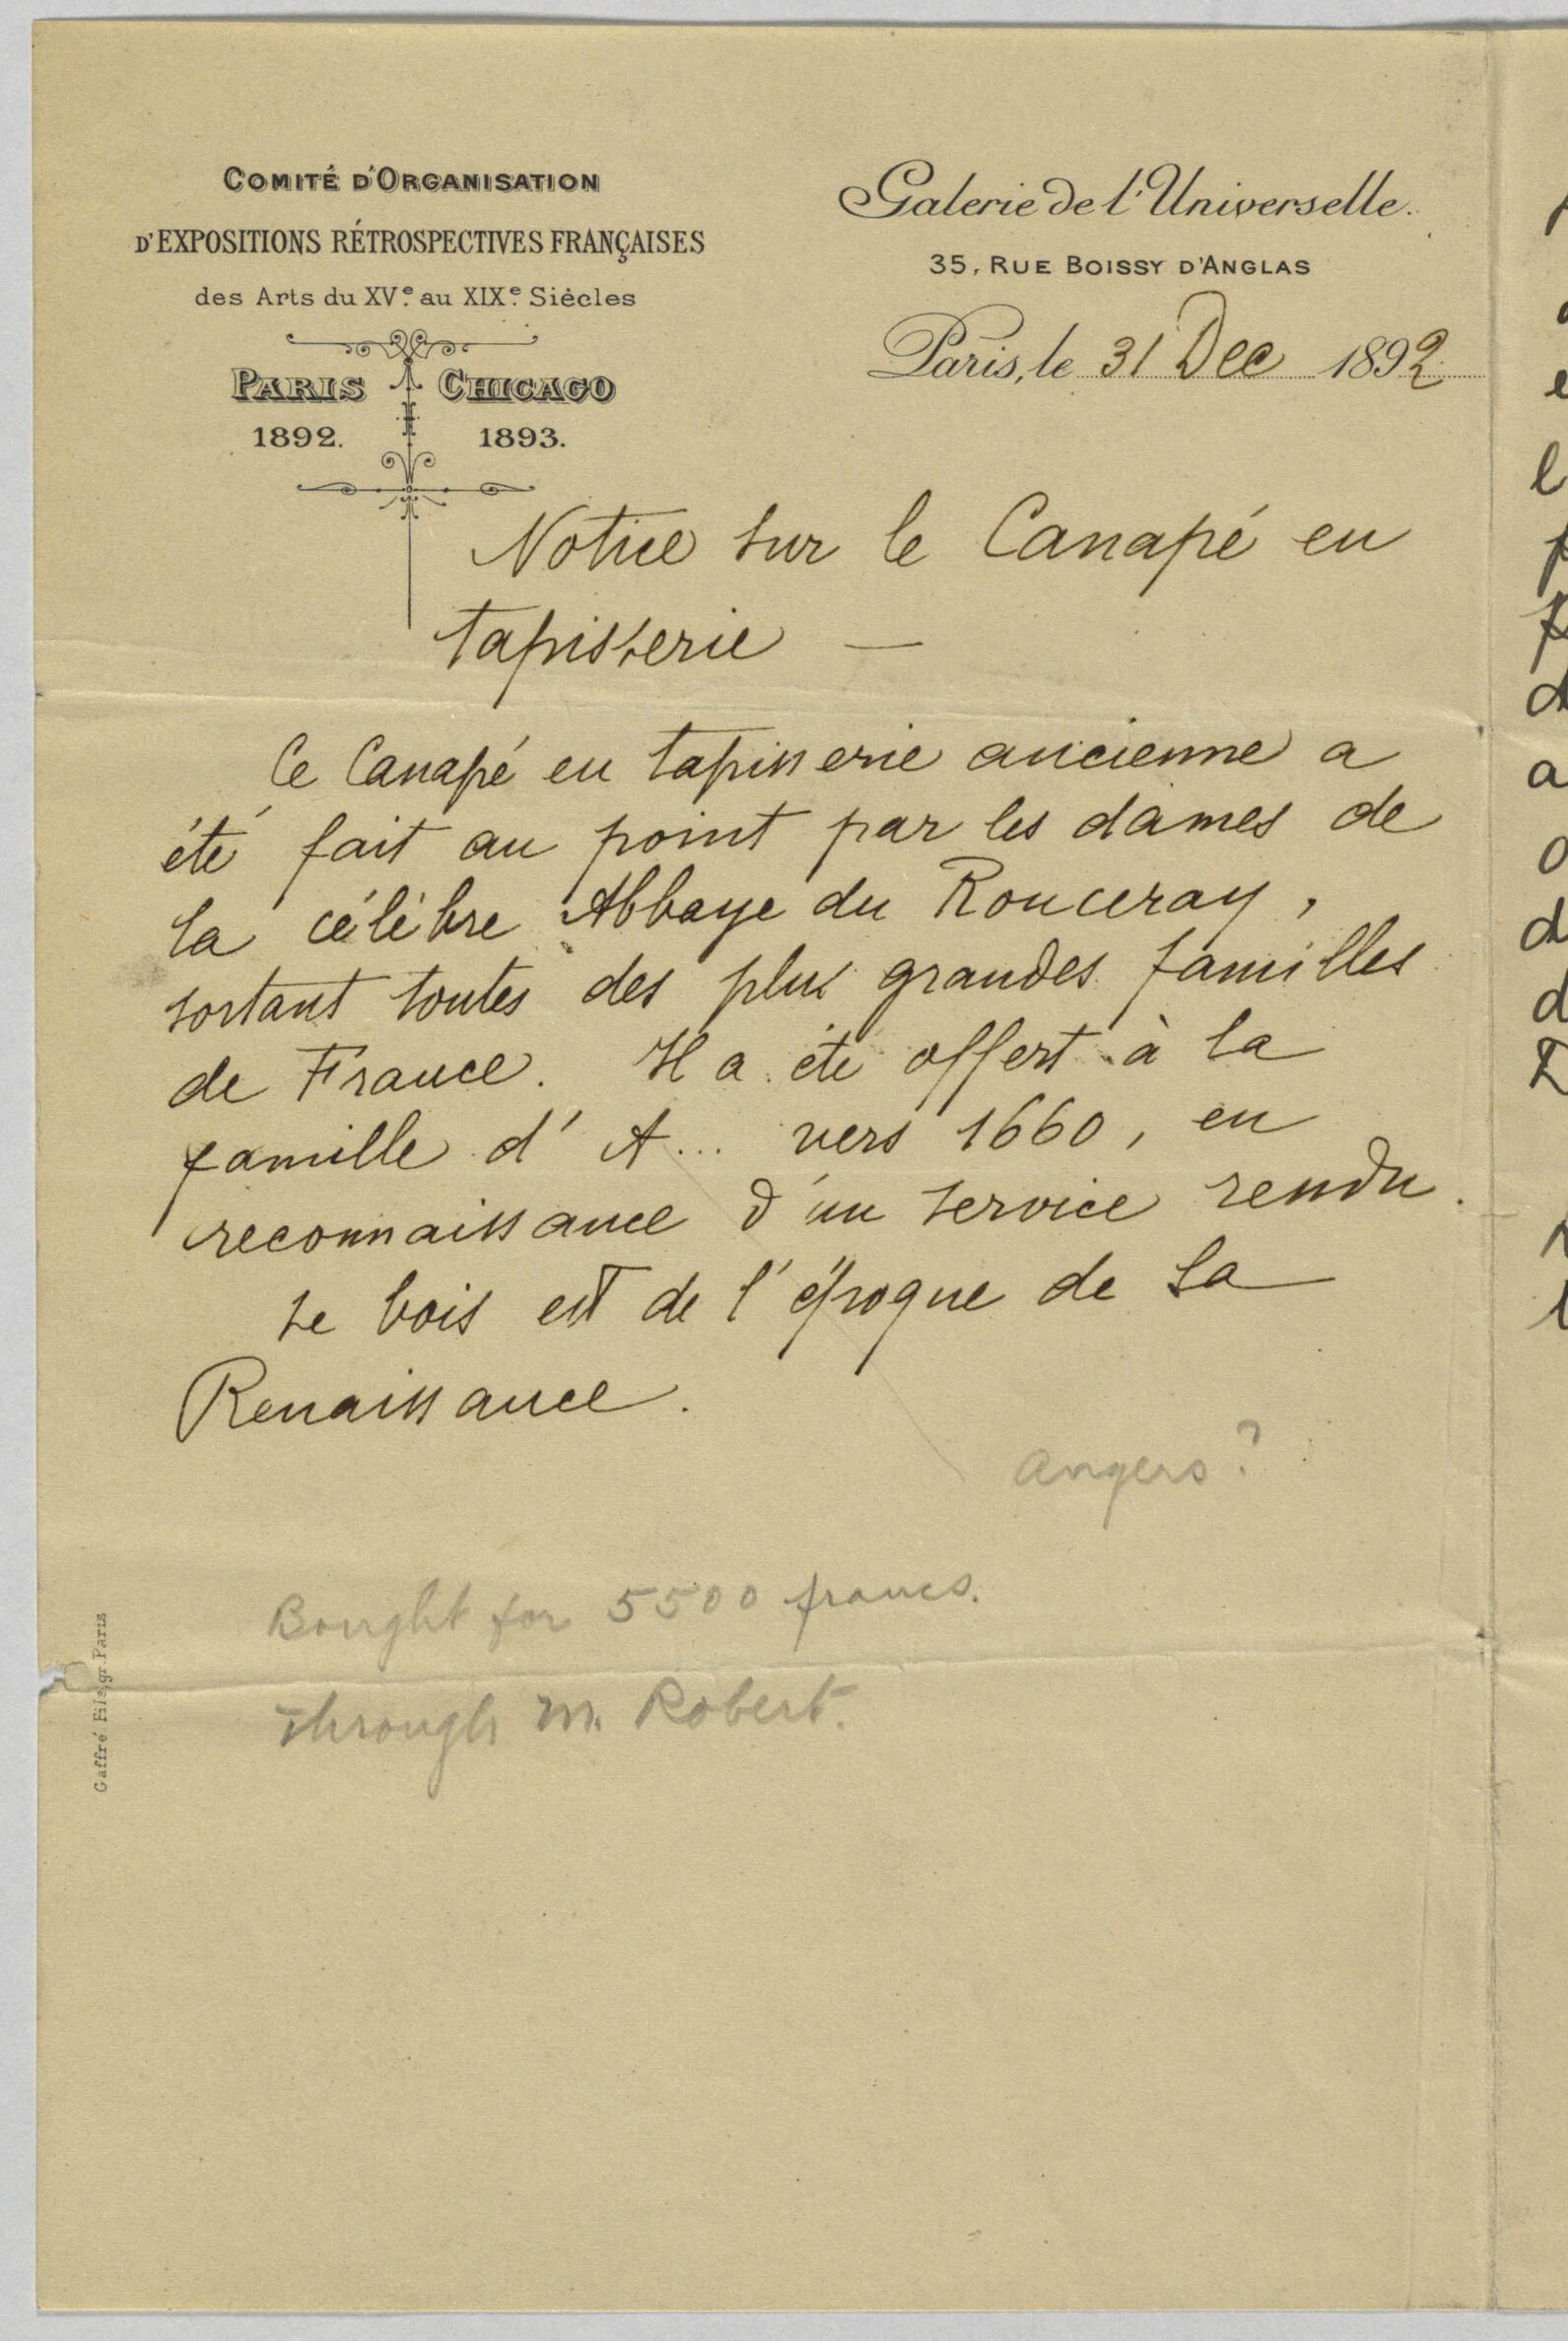 COMITÉ D'ORGANISATION
D'EXPOSITIONS RÉTROSPECTIVES FRANÇAISES
des Arts du XVe au XIXe Siècles
PARIS CHICAGO
1892. 1893.
Galerie de l'Universelle.
35, RUE BOISSY D'ANGLAS
Paris, le 31 Dec 1892
Notice sur le Canapé en
tapisserie —
Ce Canapé en tapisserie ancienne a
été fait au point par les dames de
la célèbre Abbaye du Ronceray,
sortant toutes des plus grandes familles
de France. Il a été offert à la
famille d'A... vers 1660, en
reconnaissance d'un service rendu.
Le bois est de l'époque de la
Renaissance.
Angers?
Bought for 5500 francs.
Through M. Robert.
Gaffré Fils, gr. Paris